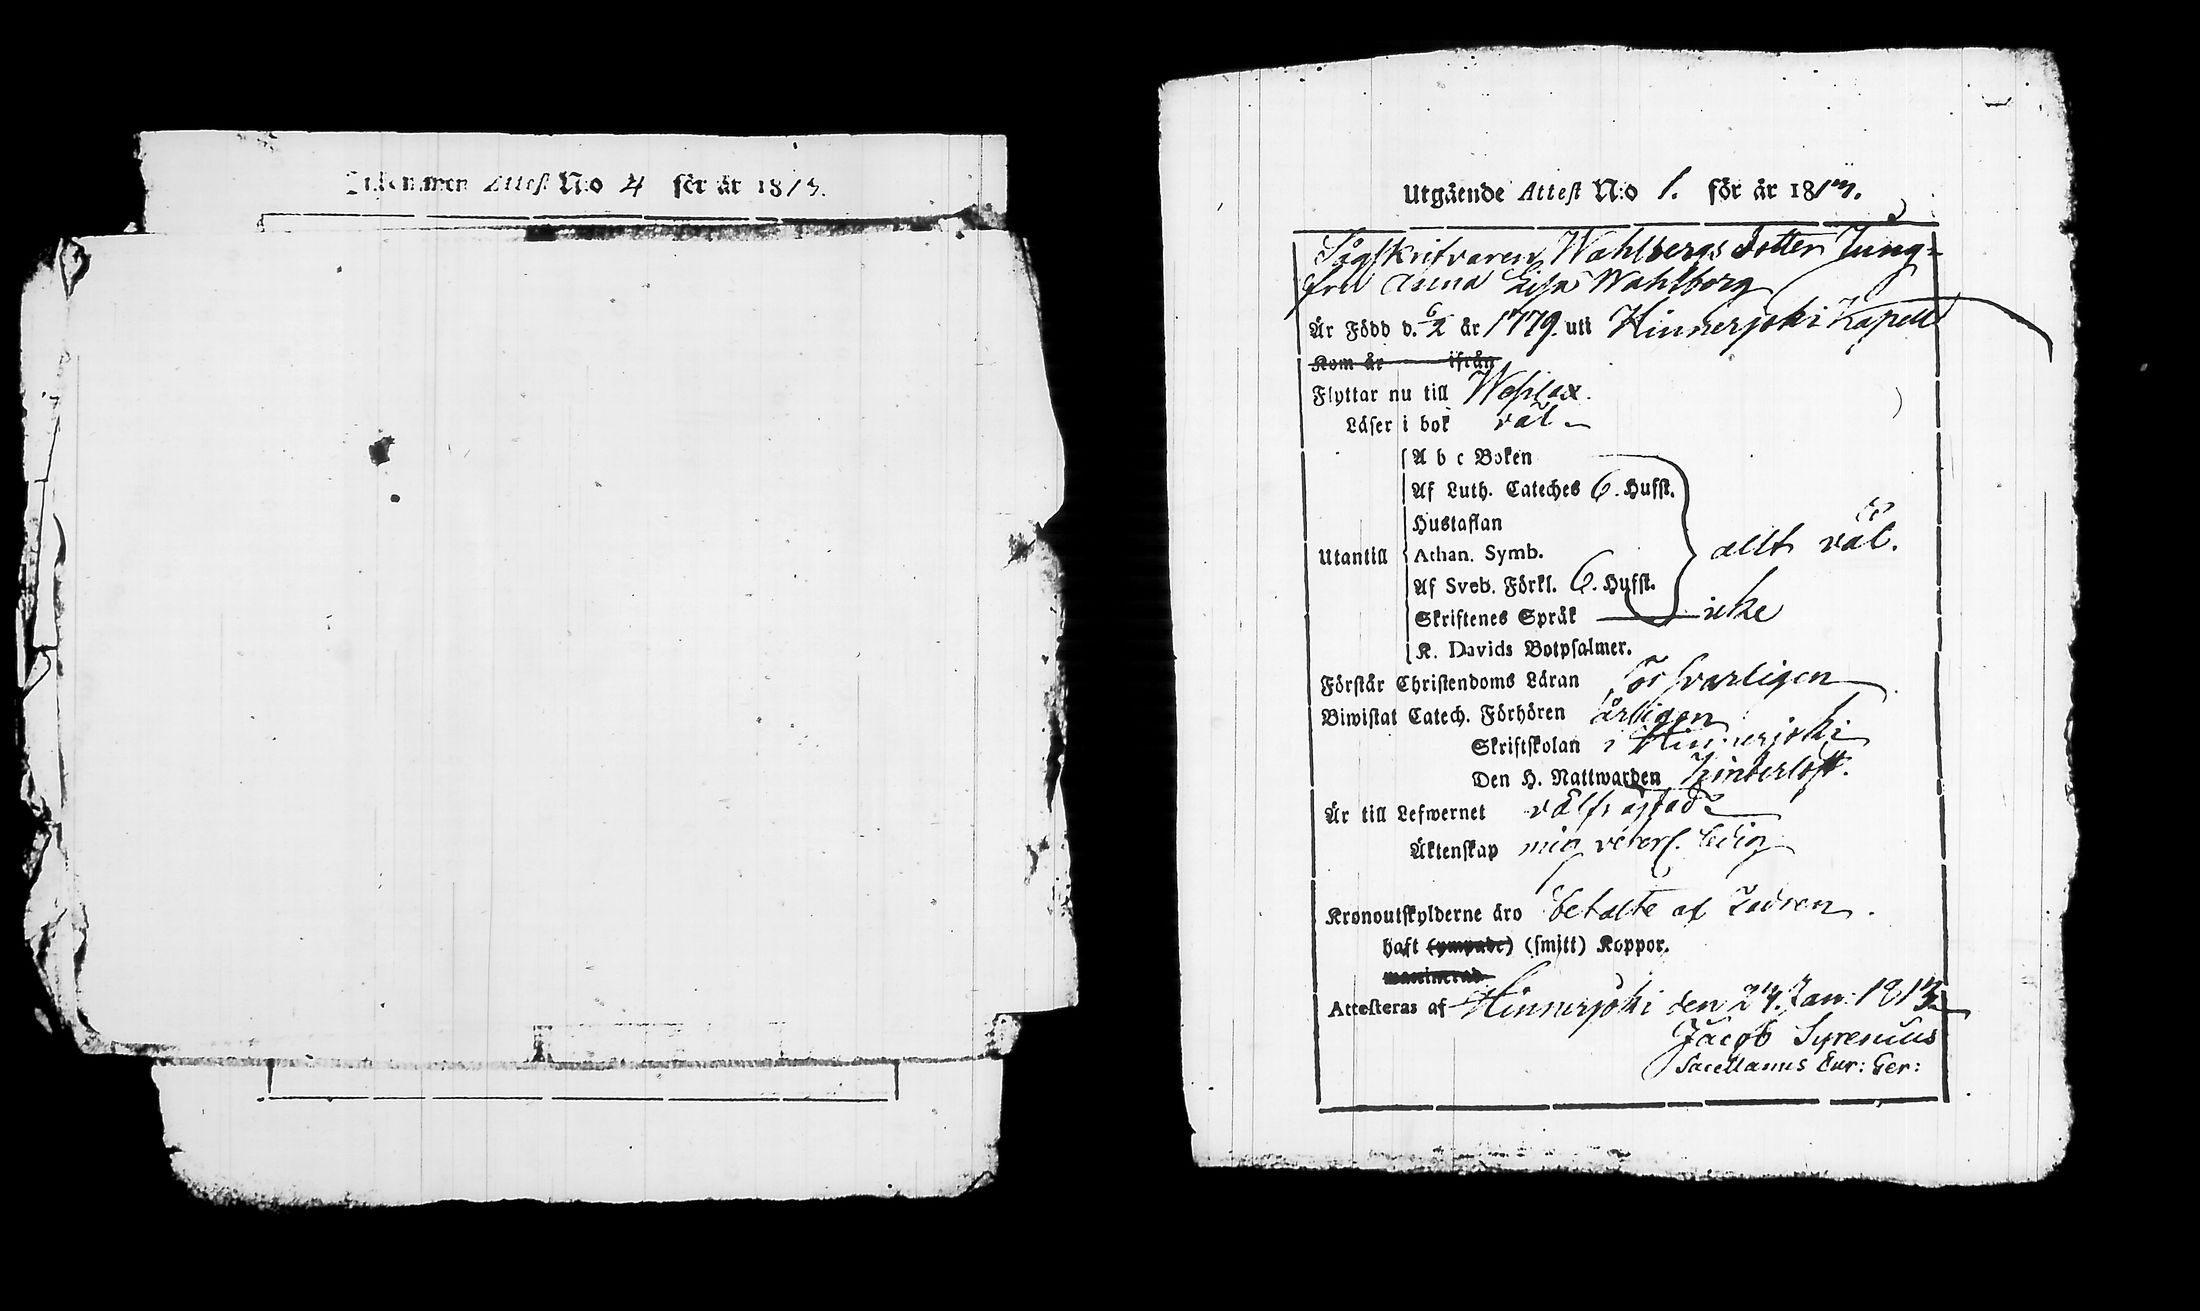 Inkommen Attest N:o 4 för år 1813.
Utgående Attest N:o 1. för år 1813.
Sågskrifvaren Wahlbergs Dotter Jung-
fru Anna Lisa Wahlborg
Är Född d. 6/2 år 1779. uti Hinnerjoki Kapell
Kom år ifrån
Flyttar nu till Wehlax.
Läser i bok väl
A b c Boken
Af Luth. Cateches 6. Hufst.
Hustaflan
Utantill Athan. Symb. allt väl.
Af Sveb. Förkl. 6. Hufst.
Skriftenes Språk icke
K. Davids Botpsalmer.
Förstår Christendoms Läran försvarligen
Biwistat Catech. Förhören årligen
Skriftskolan i Hinnerjoki
Den H. Nattwarden
Är till Lefwernet välfrägdad
Äktenskap mig veterl. ledig
Kronoutskylderne äro betalte af Fadren.
haft (ympade) (smitt) Koppor.
vaccinerad
Attesteras af Hinnerjoki den 23. Jan: 1813
Jacob Syrenius
Sacellanus Eur: Ger: